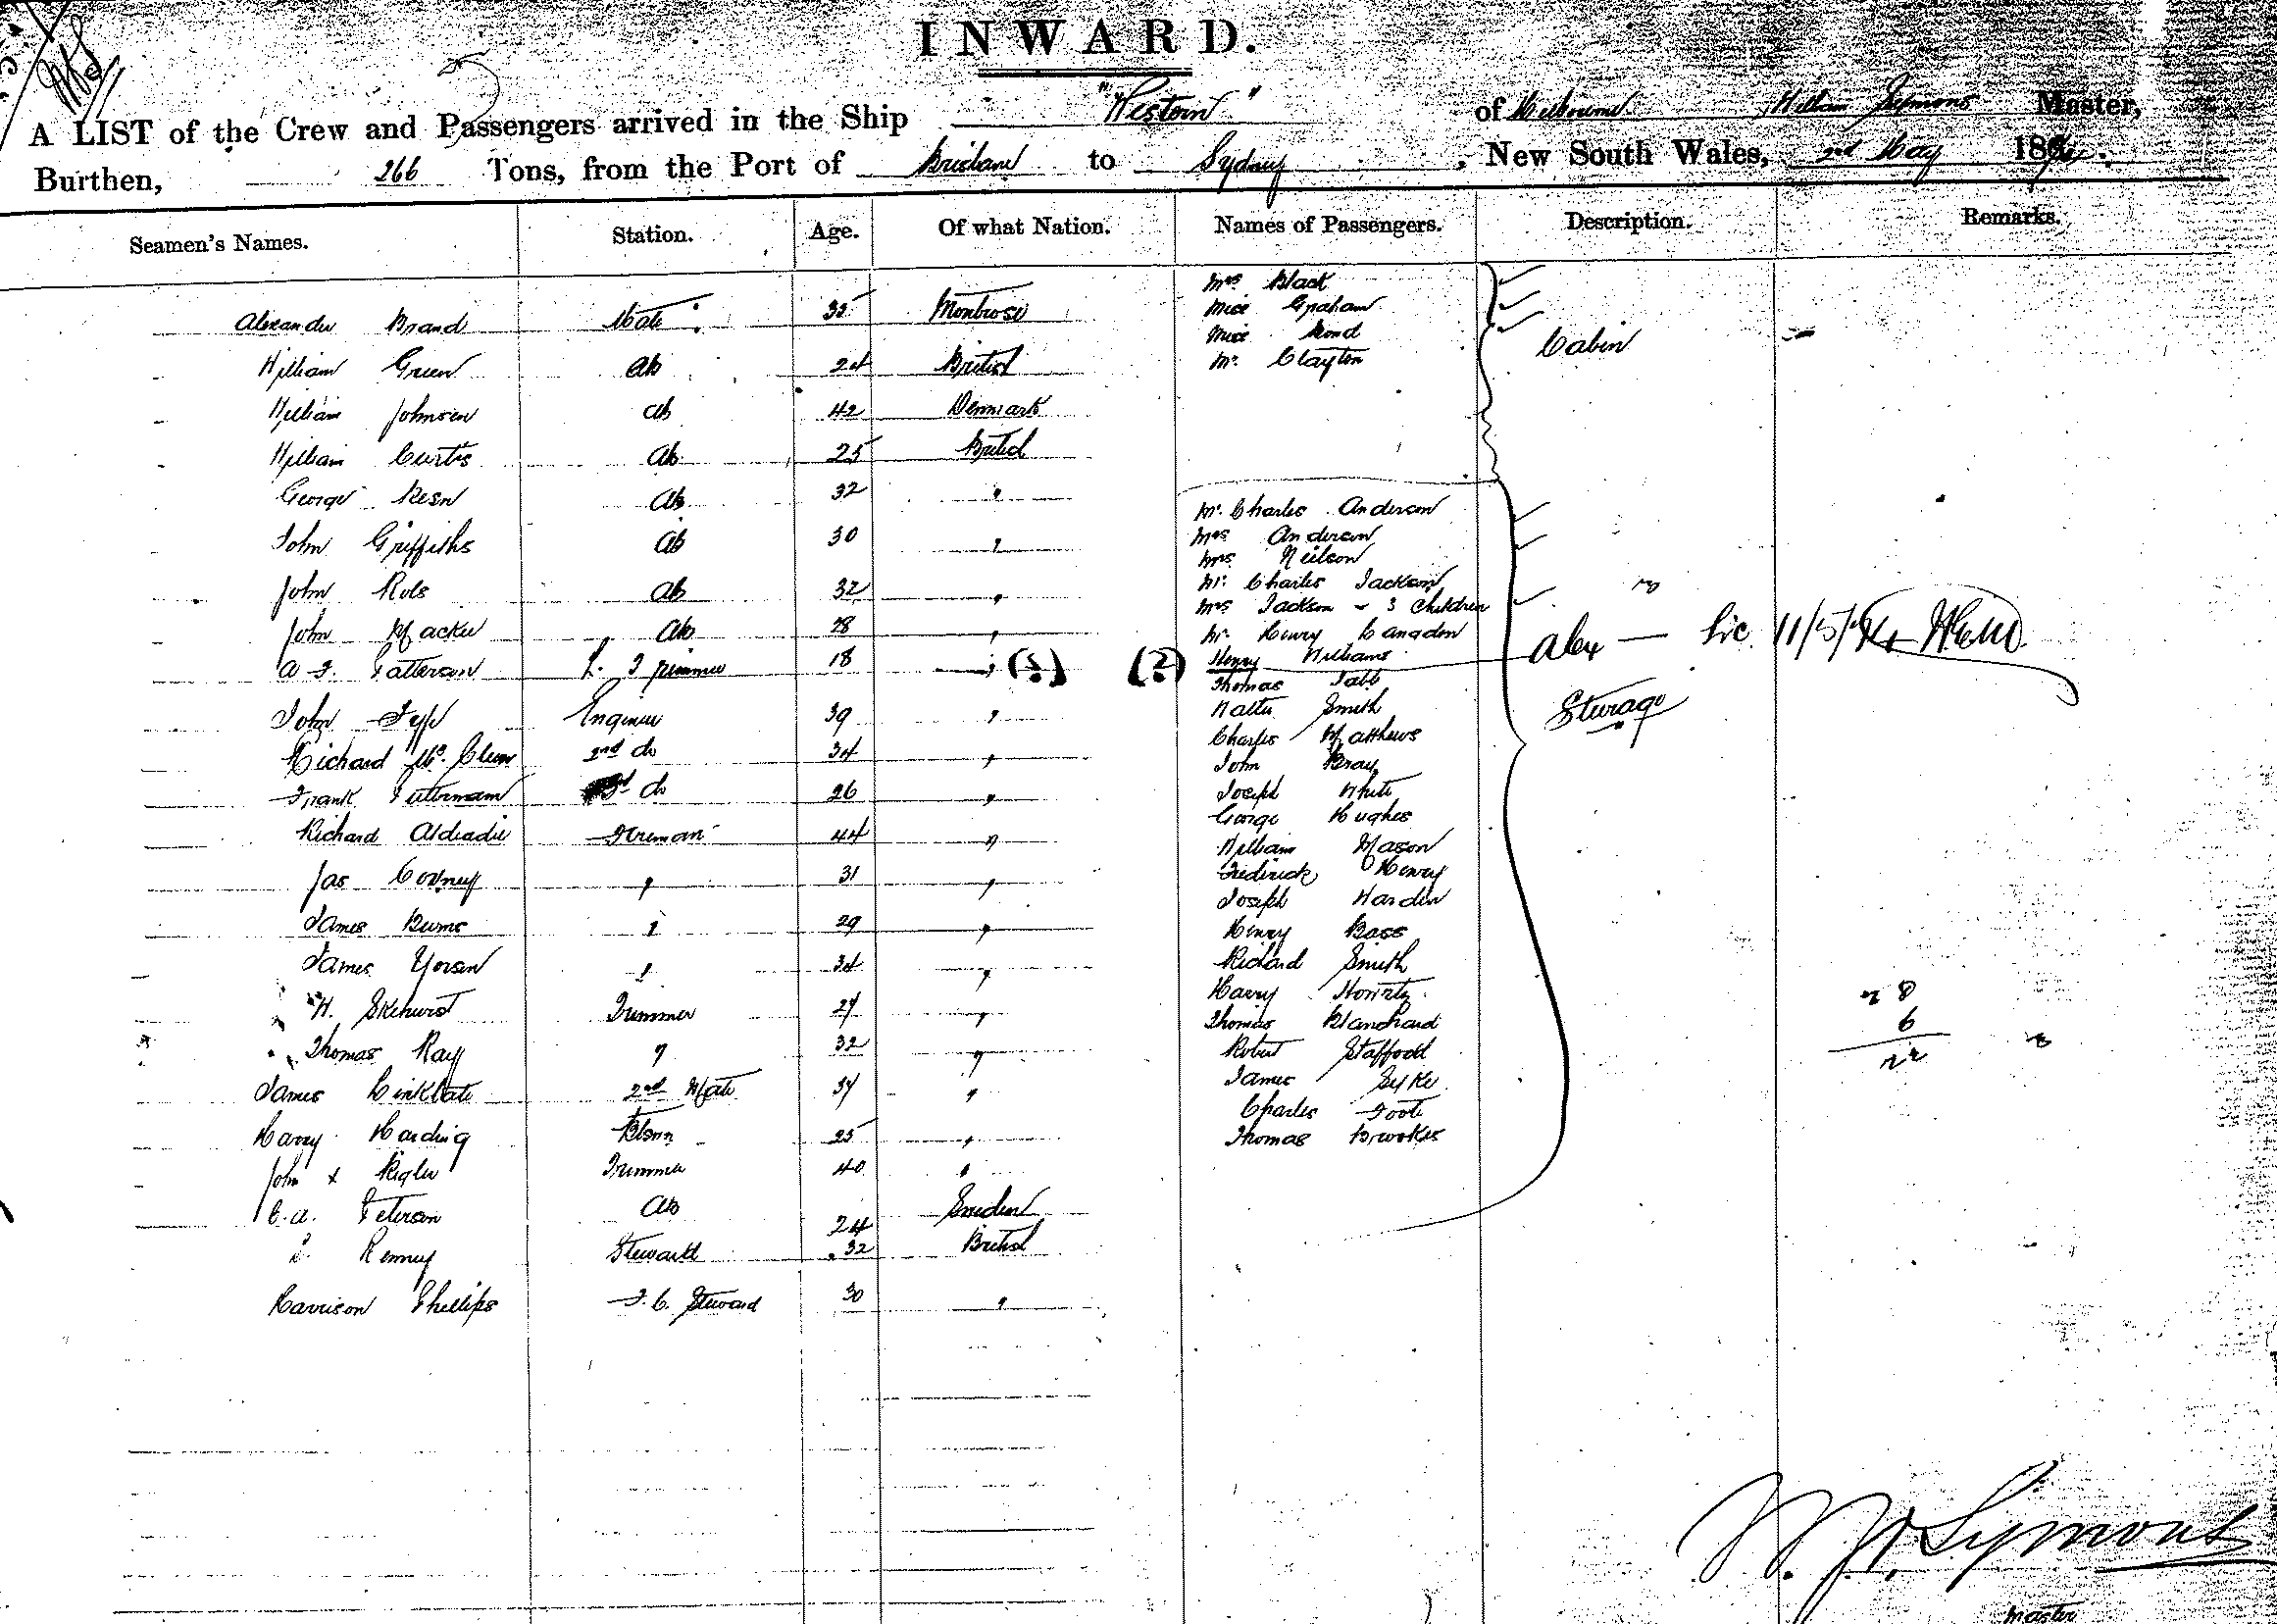 INWARD.
A LIST of the Crew and Passengers arrived in the Ship "Westown" of Melbourne, William Symons Master,
Burthen, 266 Tons, from the Port of Brisbane to Sydney, New South Wales, 2nd May 18
Seamen's Names. Station. Age. Of what Nation. Names of Passengers. Description. Remarks.
Alexander Brand Mate 35 Montrose
William Green AB 24 British
William Johnsen AB 42 Denmark
William Curtis AB 25 British
George AB 32 "
John Griffiths AB 30 "
John AB 32 "
John Mackie AB 28 "
A F. Patterson Trimmer 18 "
John Fyfe Engineer 39 "
Richard Mc. 2nd do 34 "
Frank 3rd do 26 "
Richard Fireman 44 "
Jas " 31 "
James Burns " 29 "
James " 34 "
W. Skehurst Trimmer 27 "
Thomas Ray " 32 "
James 2nd Mate 37 "
Harry Harding 25 "
John x Trimmer 40 "
C. A. Peterson AB 24 Sweden
Kenney Steward 32 British
Harrison Phillips F. C. Steward 30 "
Mrs Black
Miss Graham
Miss
Mr. Clayton
Cabin
Mr. Charles Anderson
Mrs Anderson
Mrs Neilson
Mr. Charles Jackson
Mrs Jackson - 3 Children
Mr. Henry Langdon
(?) (?) Henry Williams
Thomas
Walter Smith
Charles Matthews
John Bray
Joseph White
George Hughes
William Mason
Frederick Henry
Joseph Harden
Henry Bass
Richard Smith
Harry
Thomas Blanchard
Robert Stafford
James
Charles Foote
Thomas Brookes
Alex — 11/5/
Steerage
28
6
22
W. J. Symons
Master